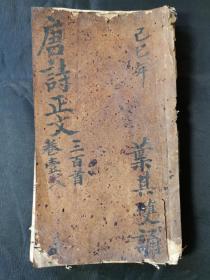 己巳年
葉其雙誦
唐詩正文
三百首
卷